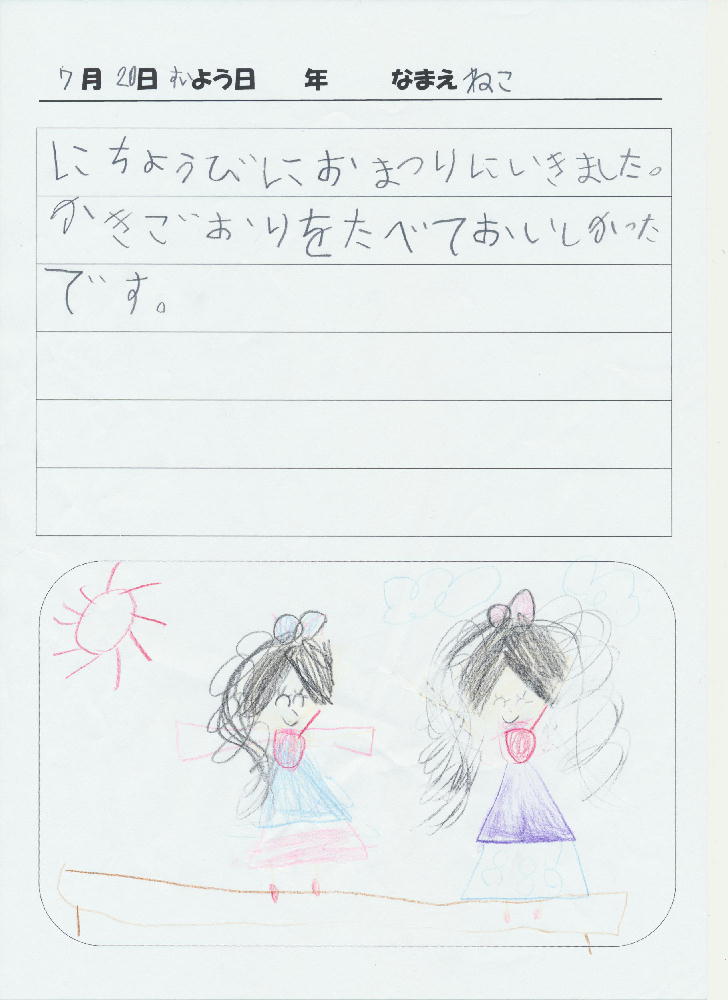 7月20日すいよう日 年 なまえ ねこ
にちようびにおまつりにいきました。
かきごおりをたべておいしかった
です。